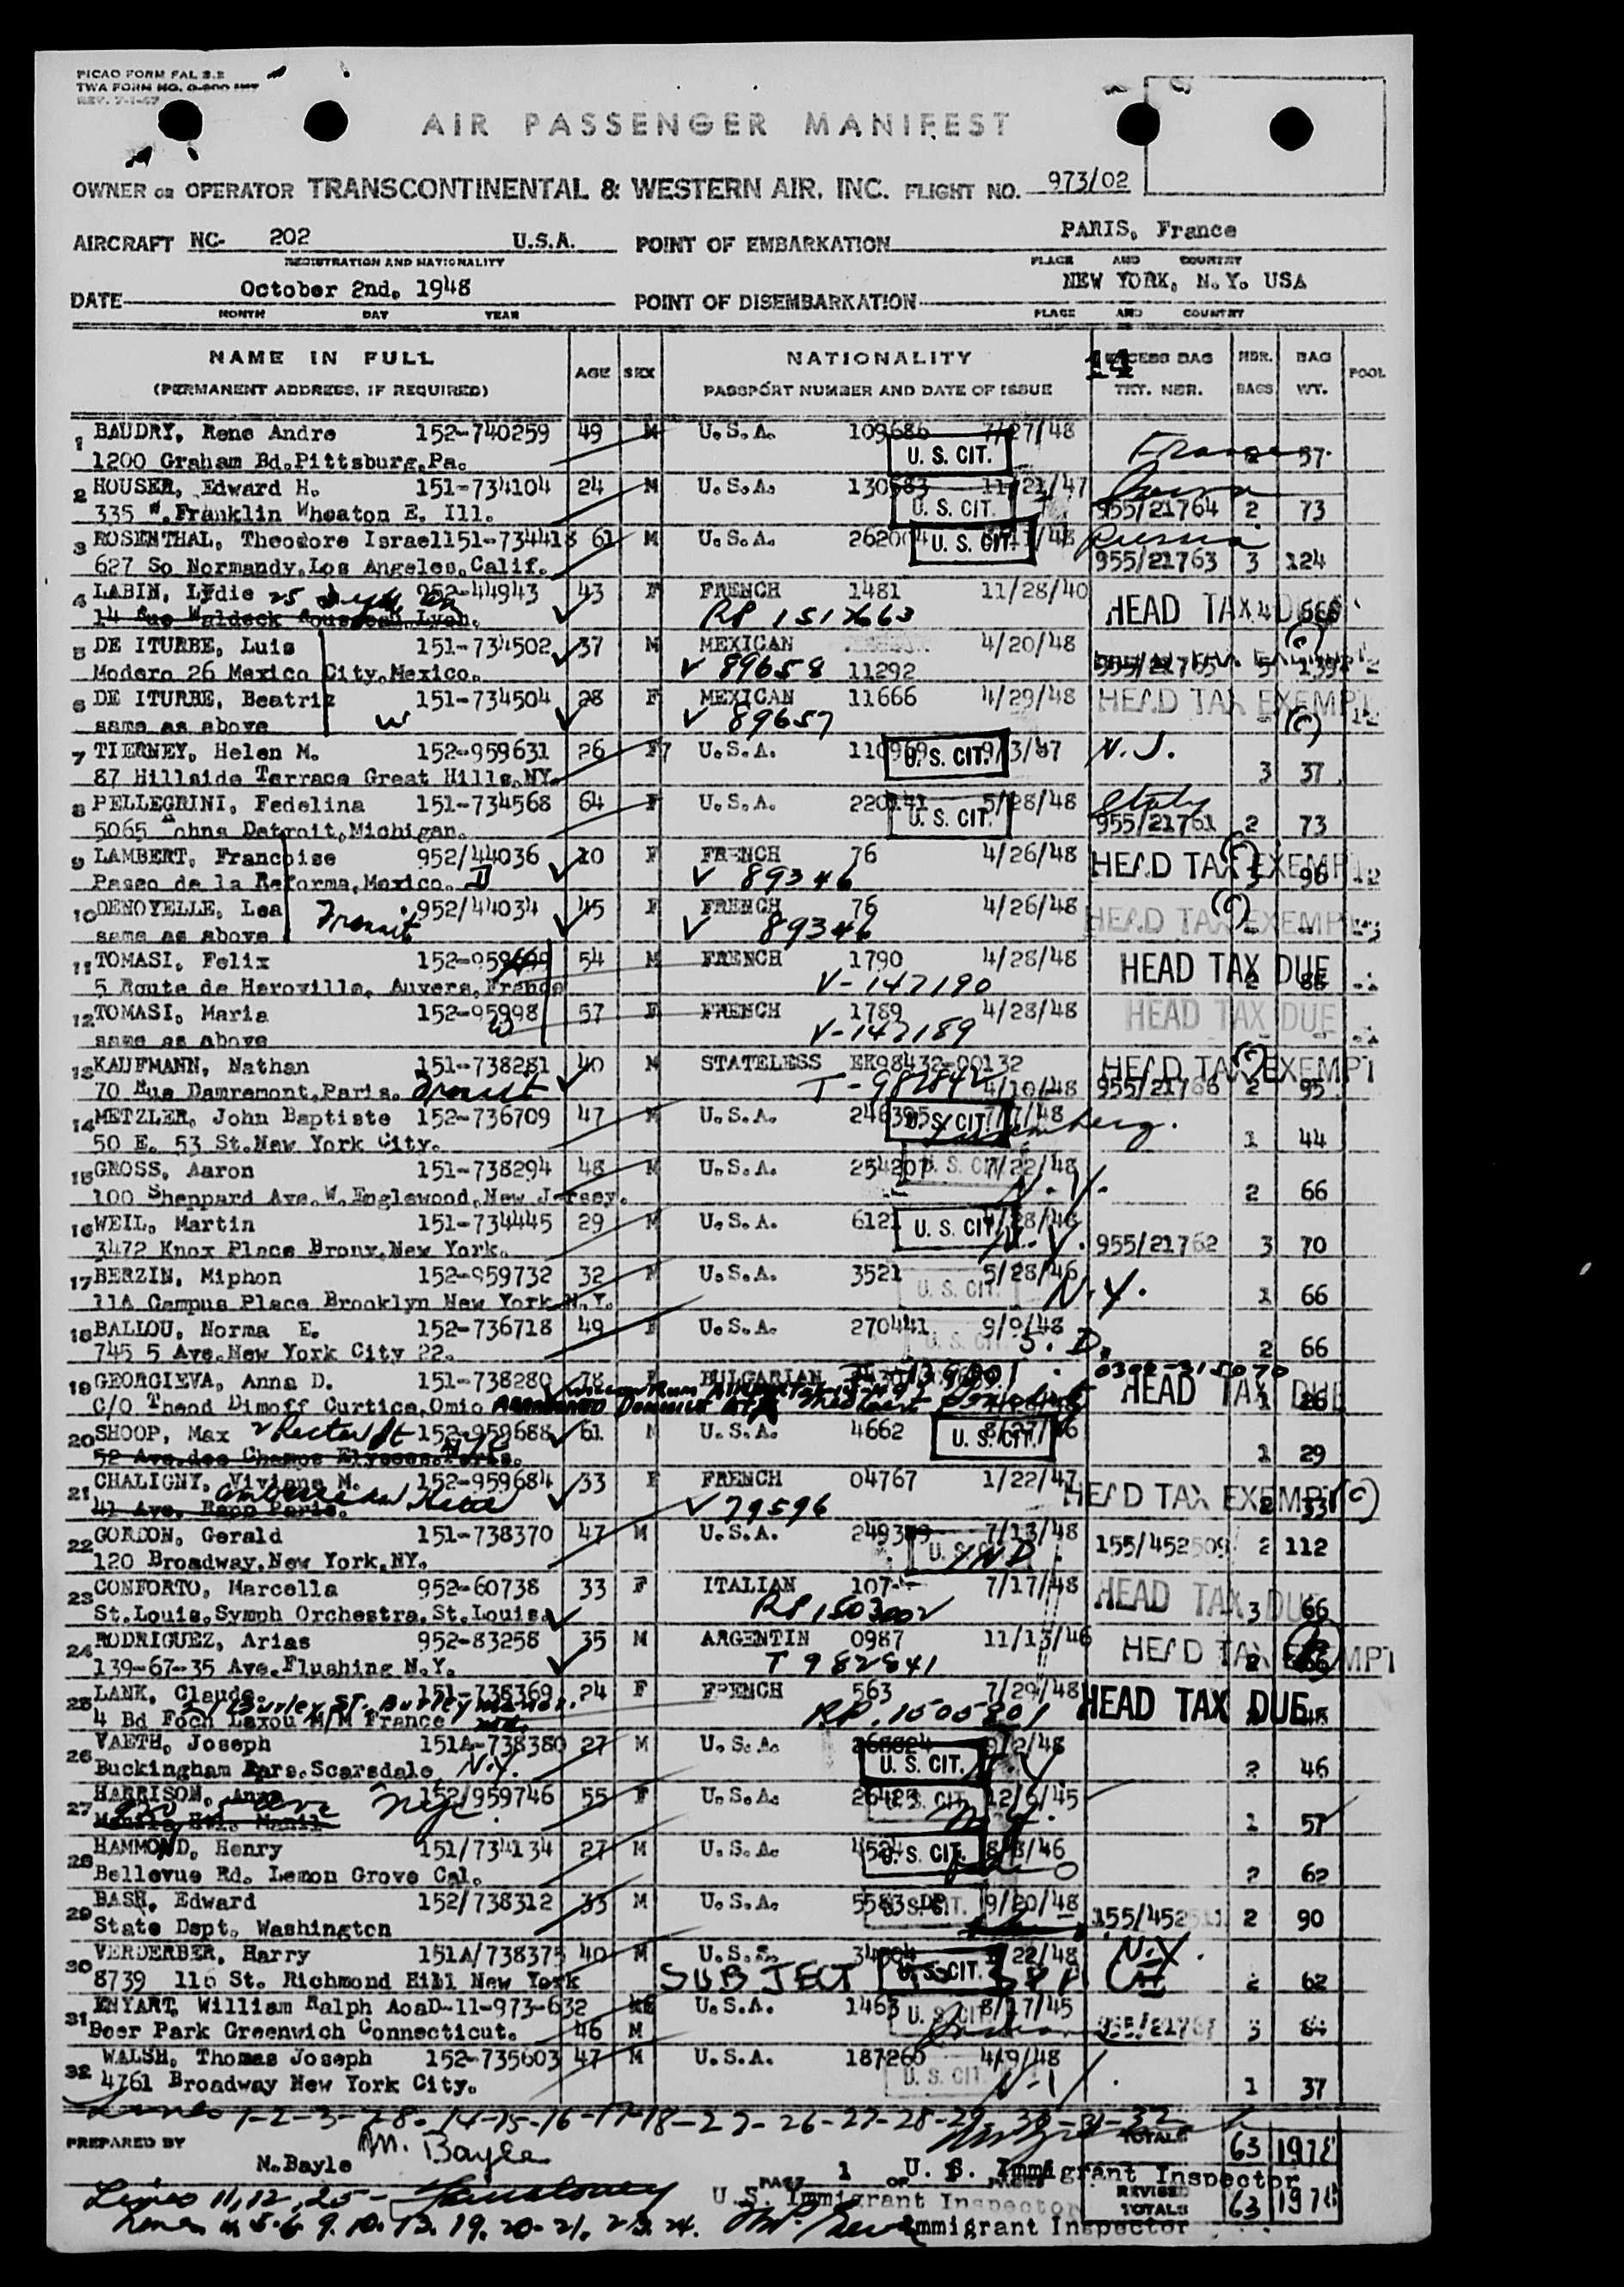 PICAO FORM FAL 2.2
TWA FORM NO.
REV. 7-1-47
AIR PASSENGER MANIFEST
OWNER OR OPERATOR TRANSCONTINENTAL & WESTERN AIR, INC. FLIGHT NO. 973/02
AIRCRAFT NC- 202 U.S.A. POINT OF EMBARKATION PARIS, France
REGISTRATION AND NATIONALITY PLACE AND COUNTRY
DATE October 2nd, 1948 POINT OF DISEMBARKATION NEW YORK, N.Y. USA
MONTH DAY YEAR PLACE AND COUNTRY
NAME IN FULL AGE SEX NATIONALITY 14 EXCESS BAG NBR. BAG POOL
(PERMANENT ADDRESS, IF REQUIRED) PASSPORT NUMBER AND DATE OF ISSUE TKT. NBR. BAGS WT.
1 BAUDRY, Rene Andre 152-740259 49 M U.S.A. 109686 7/27/48 France
1200 Graham Bd.Pittsburg,Pa. U. S. CIT. 57
2 HOUSER, Edward H. 151-734104 24 M U.S.A. 130583 11/21/47
335 W.Franklin Wheaton E. Ill. U. S. CIT. 955/21764 2 73
3 ROSENTHAL, Theodore Israel151-734418 61 M U.S.A. U. S. CIT. Russia
627 So Normandy,Los Angeles,Calif. 955/21763 3 124
4 LABIN, Lydie 952-44943 43 F FRENCH 1481 11/28/40 HEAD TAX DUE
14 Rue Waldeck Rousseau,Lyon. RP
5 DE ITURBE, Luis 151-734502 37 M MEXICAN 4/20/48
Modero 26 Mexico City,Mexico. V 89658 11292 955/21765 5 139
6 DE ITURBE, Beatriz 151-734504 28 F MEXICAN 11666 4/29/48 HEAD TAX EXEMPT
same as above V 89657 (c)
7 TIERNEY, Helen M. 152-959631 26 F U.S.A. 110969 9/3/47 N.J.
87 Hillside Terrace Great Hills,NY. U. S. CIT. 3 37
8 PELLEGRINI, Fedelina 151-734568 64 F U.S.A. 220141 5/28/48 Italy
5065 Johns Detroit,Michigan. U. S. CIT. 955/21761 2 73
9 LAMBERT, Francoise 952/44036 10 F FRENCH 76 4/26/48 HEAD TAX EXEMPT
Paseo de la Reforma,Mexico. V 89346 96
10 DENOYELLE, Lea 952/44034 45 F FRENCH 76 4/26/48 HEAD TAX EXEMPT
same as above Transit V 89346
11 TOMASI, Felix 54 M FRENCH 1790 4/28/48 HEAD TAX DUE
5 Route de Herovills, Auvers,France V-147190 2 88
12 TOMASI, Maria 152-95998 57 F FRENCH 1789 4/28/48 HEAD TAX DUE
same as above V-147189
13 KAUFMANN, Nathan 151-738281 40 M STATELESS EK98432-00132 HEAD TAX EXEMPT
70 Rue Damremont,Paris. Transit T-982842 4/10/48 955/21766 2 95
14 METZLER, John Baptiste 152-736709 47 M U.S.A. 246395 7/7/48
50 E. 53 St.New York City. U. S. CIT. 1 44
15 GROSS, Aaron 151-738294 48 M U.S.A. 254207 7/22/48
100 Sheppard Ave.W.Englewood,New Jersey. U. S. CIT. N.Y. 2 66
16 WEIL, Martin 151-734445 29 M U.S.A. U. S. CIT.
3472 Knox Place Bronx,New York. N.Y. 955/21762 3 70
17 BERZIN, Miphon 152-959732 32 M U.S.A. 3521 5/28/46
11A Campus Place Brooklyn New York N.Y. U. S. CIT. N.Y. 1 66
18 BALLOU, Norma E. 152-736718 49 F U.S.A. 270441 9/9/48
745 5 Ave.New York City 22. U. S. CIT. S. D. 2 66
19 GEORGIEVA, Anna D. 151-738280 78 F BULGARIAN 0300-315070
C/O Thead Dimoff Curtice,Omio HEAD TAX DUE 1 26
20 SHOOP, Max Rector St 152-959688 61 M U.S.A. 4662 U. S. CIT.
52 Ave.des Champs Elysees.Paris. 1 29
21 CHALIGNY, Viviane M. 152-959684 33 F FRENCH 04767 1/22/47 HEAD TAX EXEMPT (c)
41 Ave. Rapp Paris. V 79596 2 33
22 GORDON, Gerald 151-738370 47 M U.S.A. 7/13/48 155/452509 2 112
120 Broadway,New York,NY. U. S. IND.
23 CONFORTO, Marcella 952-60738 33 F ITALIAN 107 7/17/48 HEAD TAX DUE
St.Louis,Symph Orchestra,St.Louis. RP 3 66
24 RODRIGUEZ, Arias 952-83258 35 M ARGENTIN 0987 11/13/46 HEAD TAX EXEMPT
139-67-35 Ave.Flushing N.Y. T 982841 2 66
25 LANK, Claude. 151-738369 24 F FRENCH 563 7/29/48 HEAD TAX DUE
4 Bd Foch Laxou M/M France
26 VAETH, Joseph 151A-738380 27 M U.S.A. 9/2/48
Buckingham Sars.Scarsdale N.Y. U. S. CIT. 2 46
27 HARRISON, Anna 152/959746 55 F U.S.A. 12/6/45
Manila Htl. Manil NYC U. S. CIT. 1 57
28 HAMMOND, Henry 151/734134 27 M U.S.A. U. S. CIT.
Bellevue Rd. Lemon Grove Cal. 2 62
29 BASH, Edward 152/738312 33 M U.S.A. U. S. CIT. 9/20/48
State Dept. Washington 2 90
30 VERDERBER, Harry 151A/738375 40 M U.S.S. N.Y.
8739 116 St. Richmond Hill New York SUBJECT U. S. CIT. 2 62
31 ENYART, William Ralph AoaD-11-973-632 U.S.A. 1463 8/17/45
Deer Park Greenwich Connecticut. 46 M U. S. CIT. 3 84
32 WALSH, Thomas Joseph 152-735603 47 M U.S.A. 187260 4/9/48
4761 Broadway New York City. U. S. CIT. N-Y 1 37
Lines 1-2-3-7-8-14-15-16-17-18-22-26-27-28-29-30-31-32
PREPARED BY M. Bayle TOTALS 63 1978
N.Bayle PAGE 1 OF PAGES U. S. Immigrant Inspector
Lines 11,12,25- U.S. Immigrant Inspector REVISED TOTALS 63 1978
Lines 4.5.6.9.10.13.19.20-21.23.24. Immigrant Inspector